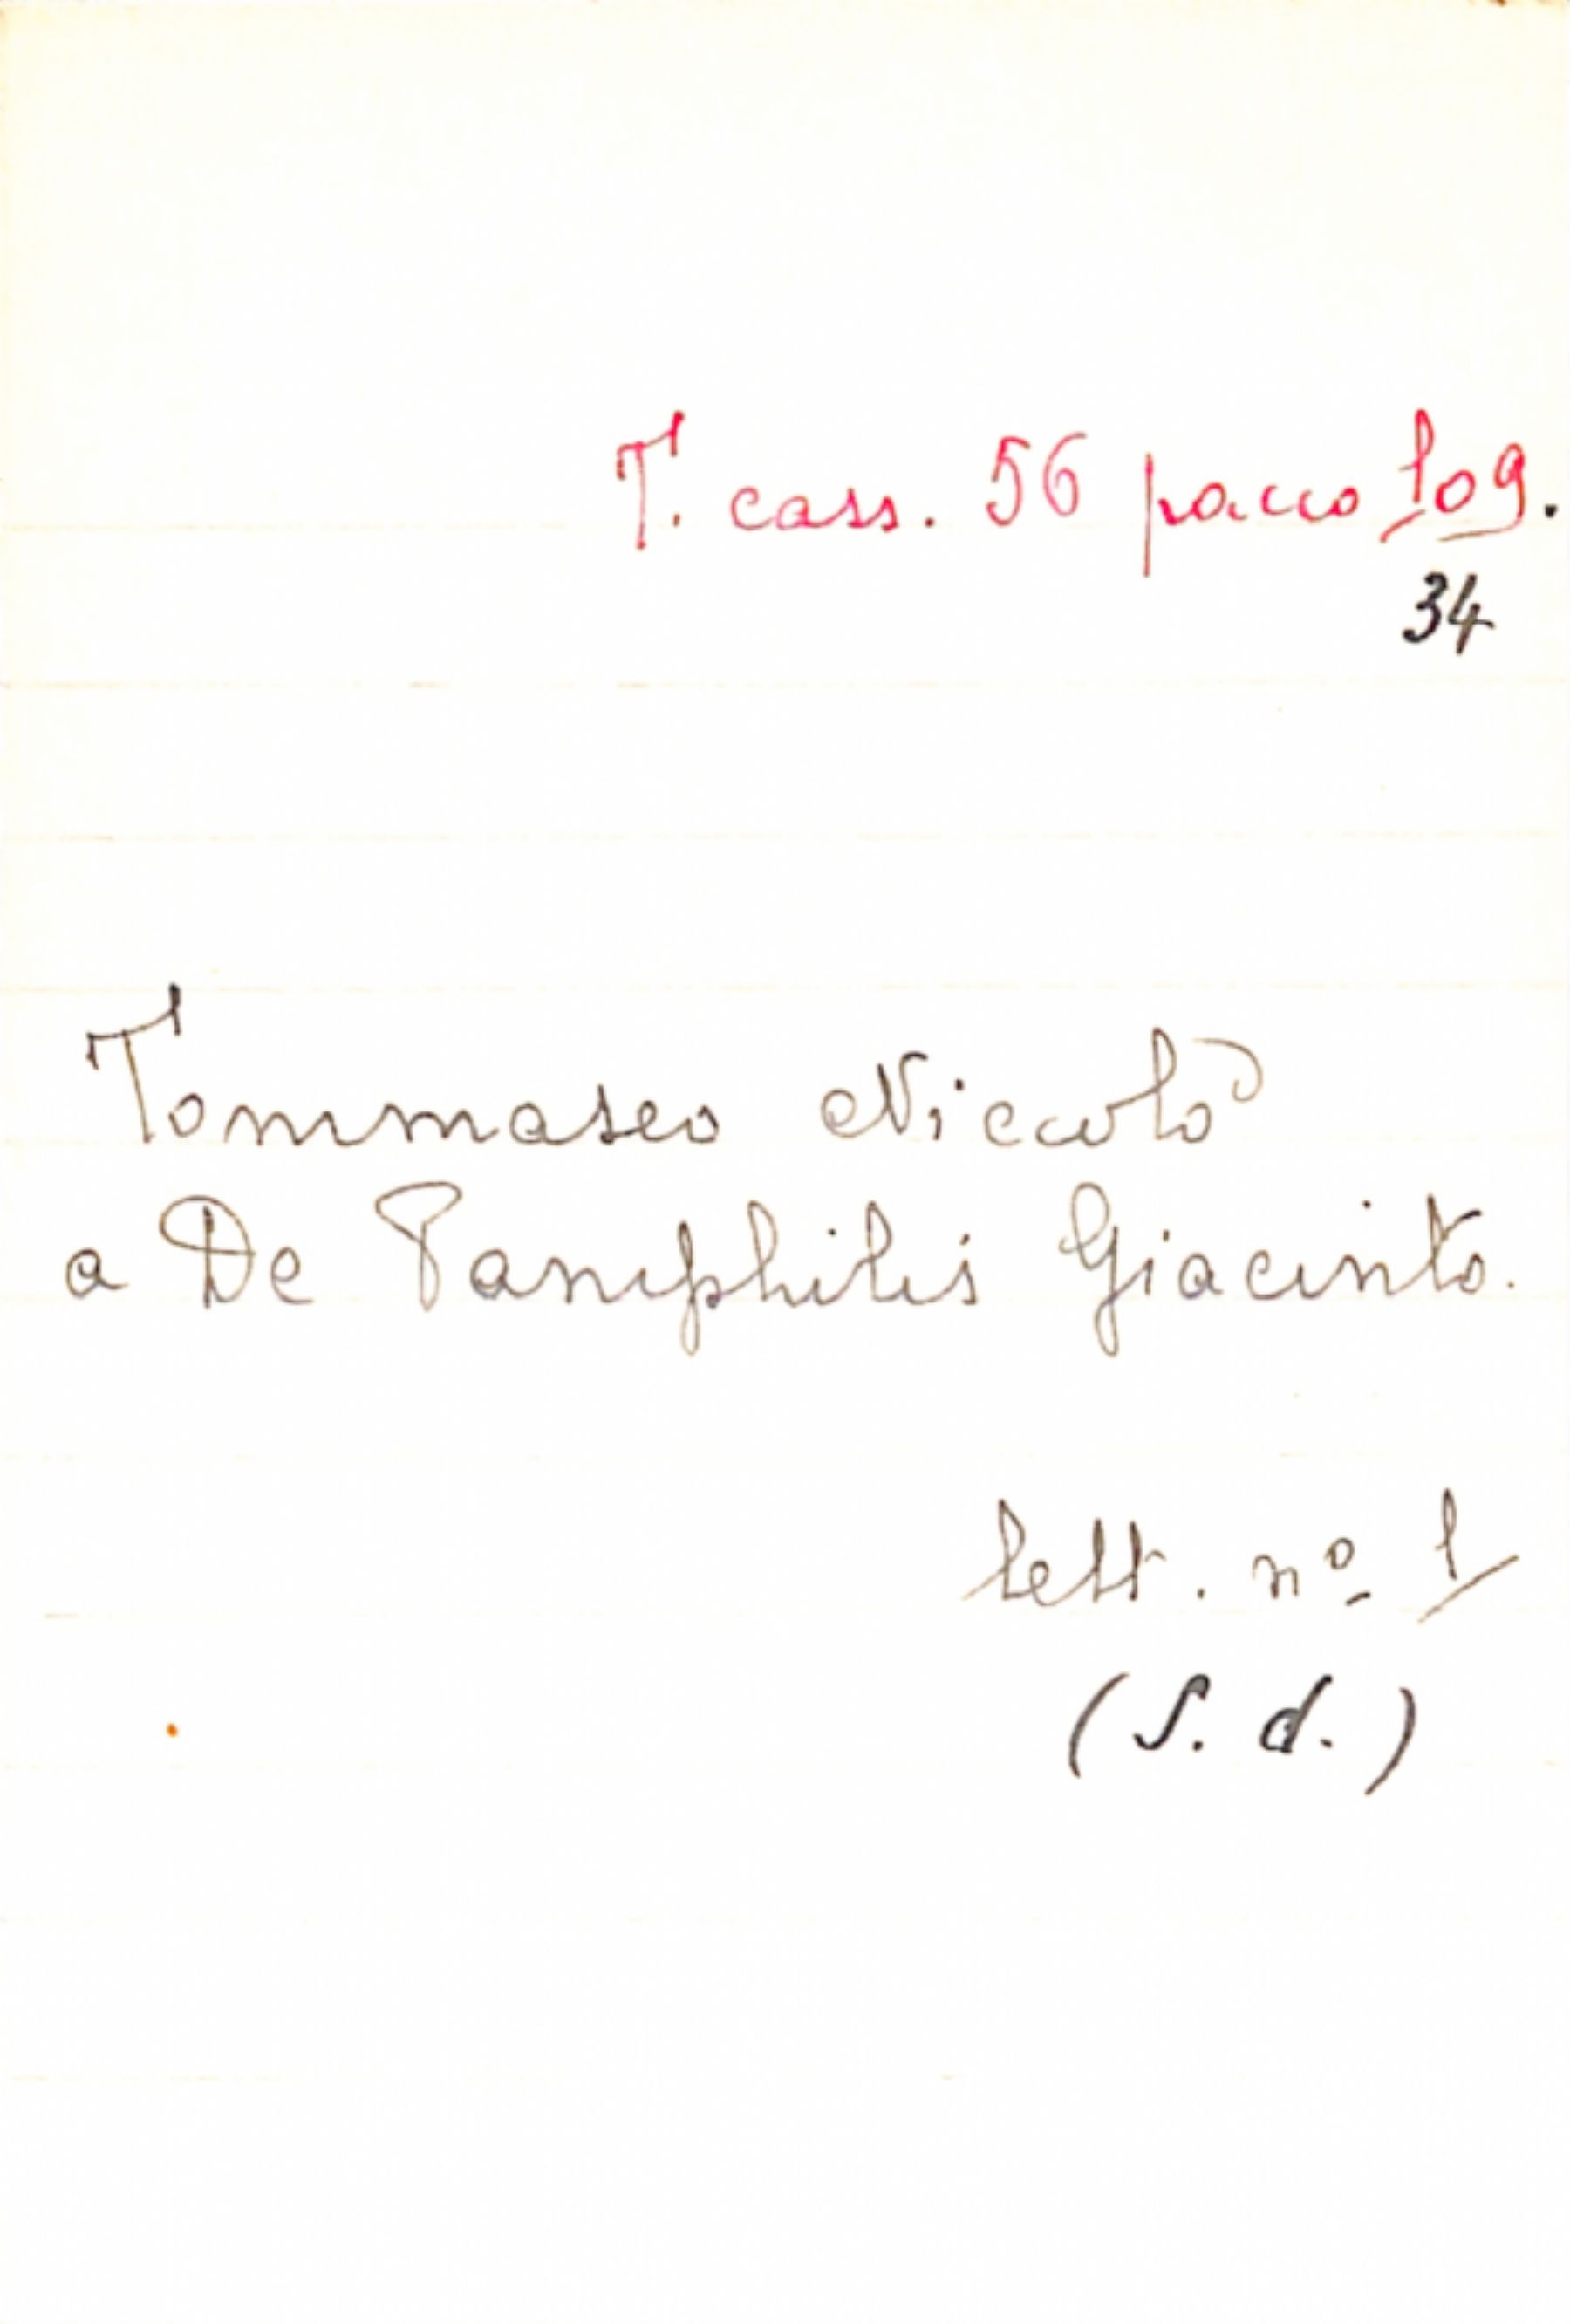 T. cass. 56 pacco 109.
34
Tommaseo Niccolò
a De Pamphilis Giacinto.
lett. nº 1
(S. d.)